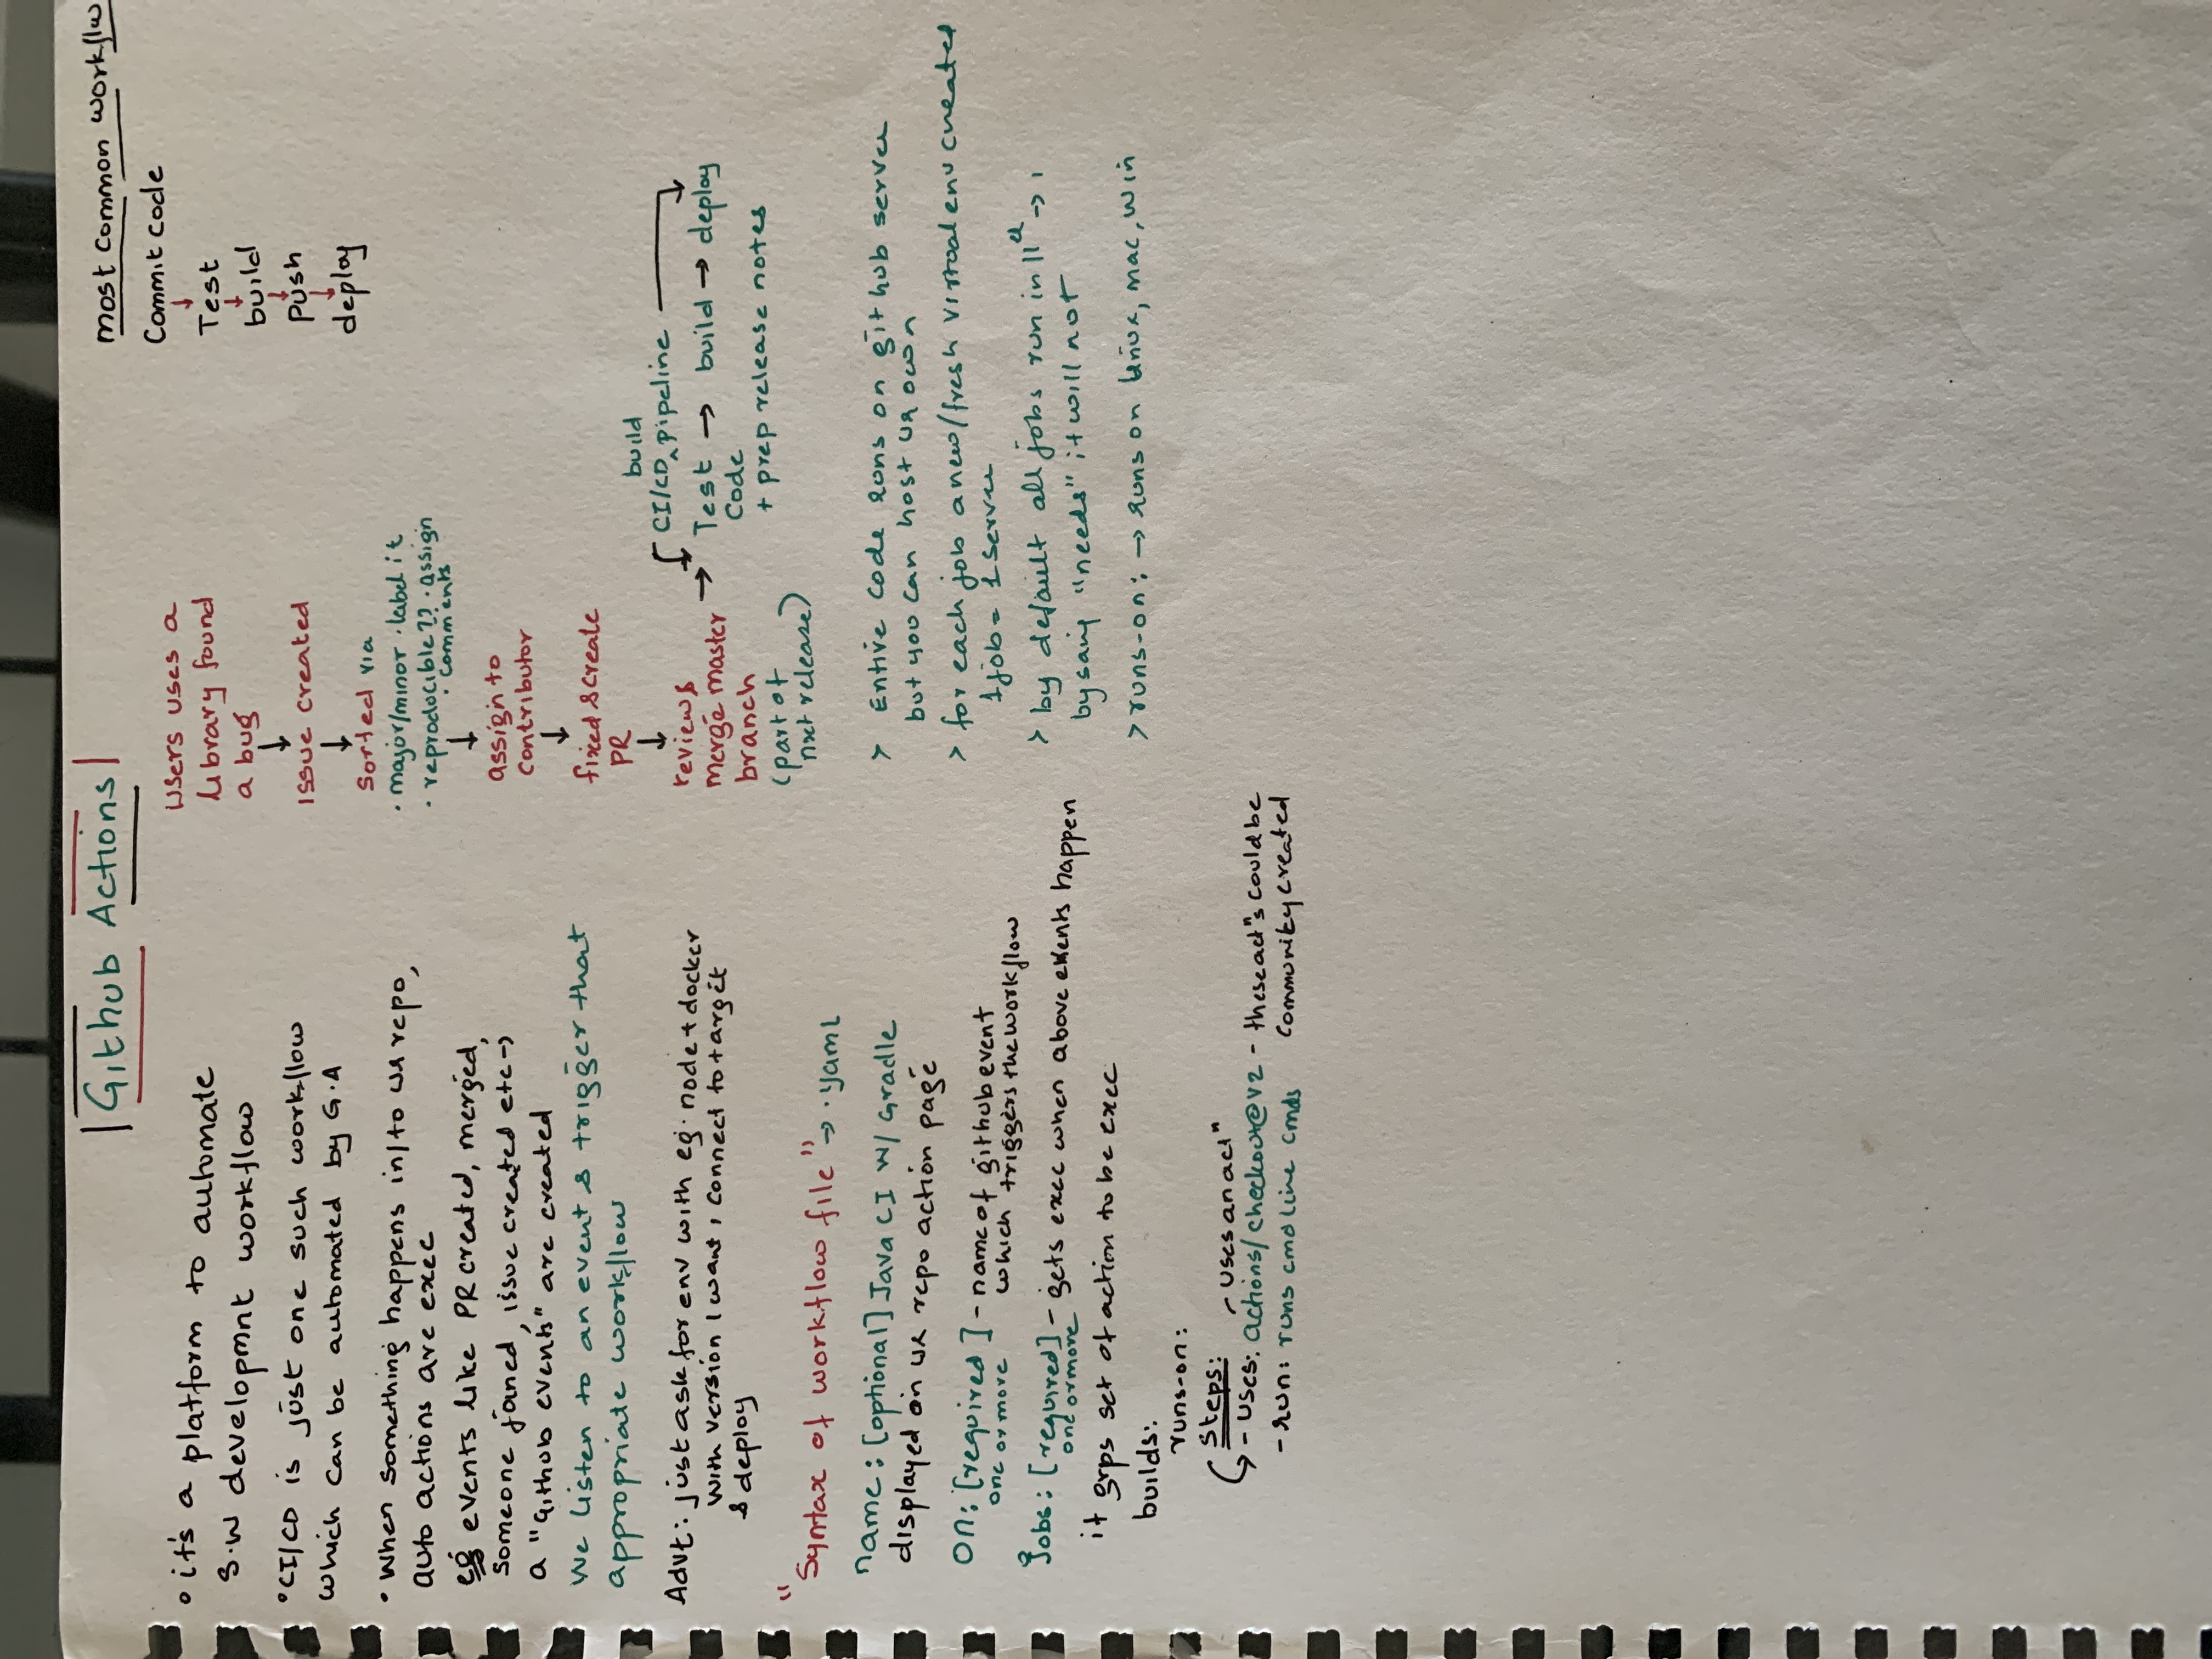 Github Actions
• it's a platform to automate
S.W developmnt workflow
• CI/CD is just one such workflow
which can be automated by G.A
• When something happens in/to ur repo,
auto actions are exec
eg events like PR created, merged,
someone joined, issue created etc →
a "Github events" are created
We listen to an event & trigger that
appropriate workflow
Advt: just ask for env with eg. node + docker
with version I want, connect to target
& deploy
"Syntax of workflow file" → .yaml
name: [optional] Java CI W/ Gradle
displayed on ur repo action page
On: [required] - name of github event
one or more which triggers the workflow
Jobs: [required] - gets exec when above events happen
one or more
it grps set of action to be exec
builds:
runs-on:
Steps:
- uses an actⁿ
- uses: actions/checkout@v2 - these actⁿs could be
- run: runs cmd line cmds community created
Users uses a
library found
a bug
↓
Issue created
↓
Sorted via
• major/minor • label it
• reproducible?? • assign
• comments
↓
assign to
contributor
↓
fixed & create
PR
↓
review &
merge master
branch
(part of
nxt release)
→
build
CI/CD ^ pipeline
Test → build → deploy
Code
+ prep release notes
most common workflw
Commit code
↓
Test
↓
build
↓
push
↓
deploy
> Entire code runs on github server
but you can host ur own
> for each job a new/fresh virtual env created
1 job = 1 server
> by default all jobs run in ||el → ,
by saing "needs" it will not
> runs-on: → runs on linux, mac, win